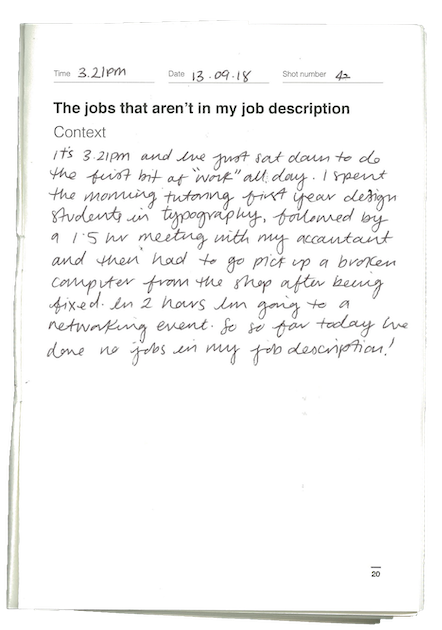 Time 3.21pm Date 13.09.18 Shot number 42
The jobs that aren't in my job description
Context
it's 3.21pm and i've just sat down to do
the first bit of "work" all day. I spent
the morning tutoring first year design
students in typography, followed by
a 1.5 hr meeting with my accountant
and then had to go pick up a broken
computer from the shop after being
fixed. in 2 hours i'm going to a
networking event. So so far today i've
done no jobs in my job description!
20